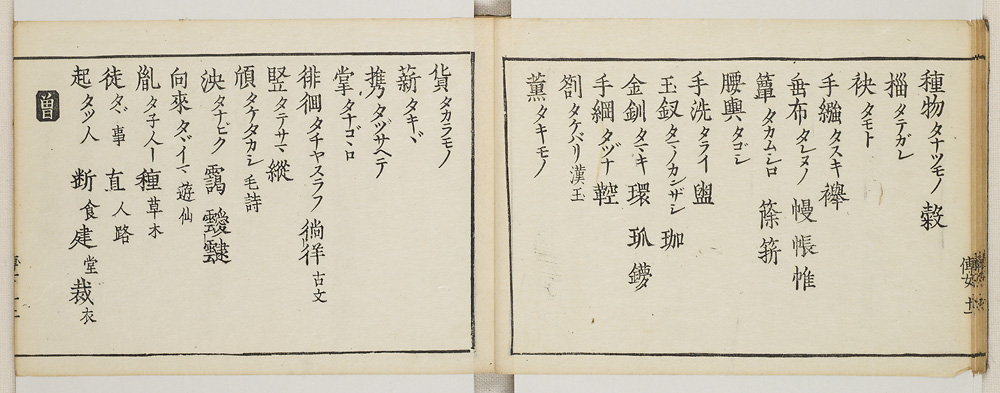 種物タナツモノ 穀
椔タテガレ
袂タモト
手繦タスキ 襷
垂布タレヌノ 幔 帳 帷
簟タカムシロ 篨 䇯
腰輿タゴシ
手洗タライ 盥
玉釵タマノカンザシ 珈
金釧タマキ 環 玔
手綱タヅナ 鞚
劄タケバリ 漢玉
薫タキモノ
貨タカラモノ
薪タキヾ
携タヅサヘテ
掌タナゴヽロ
徘徊タチヤスラフ 徜徉古文
竪タテサマ 縦
頎タケタカシ 毛詩
泱タナビク 靄 靉靆
向來タヾイマ 遊仙
胤タ子人ー 種草木
徒タヾ事 直人路
起タツ人 断食 建堂 裁衣
曽